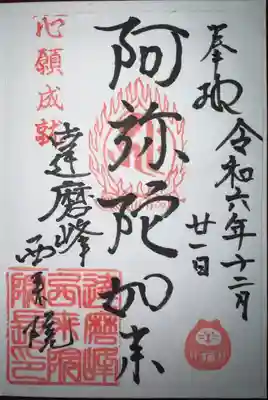 奉拝
令和六年十二月
廿一日
阿弥陀如来
心願成就
達磨峰
西来院
達磨峰
西来院